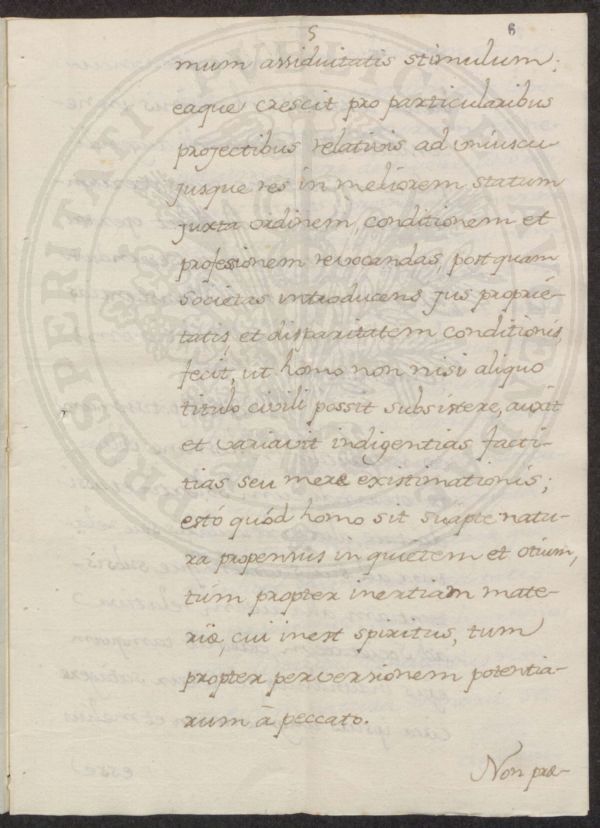 5 6
mum assiduitatis stimulum;
eaque crescit pro particularibus
projectibus relativis ad uniuscu
jusque res in meliorem statum
juxta ordinem, conditionem et
professionem revocandas, postquam
societas introducens jus proprie-
tatis et disparitatem conditionis,
fecit, ut homo non nisi aliquo
titulo civili possit subsistere, auxit
et variavit indigentias facti-
tias seu meræ existimationis;
estó quód homo sit suápte natu-
ra propensus in quietem et otium,
tùm propter inertiam mate-
riæ, cui inest spiritus, tum
propter perversionem potentia-
rum à peccato.
Non præ-
PROSPERITATI PUBLICAE AUGENDAE